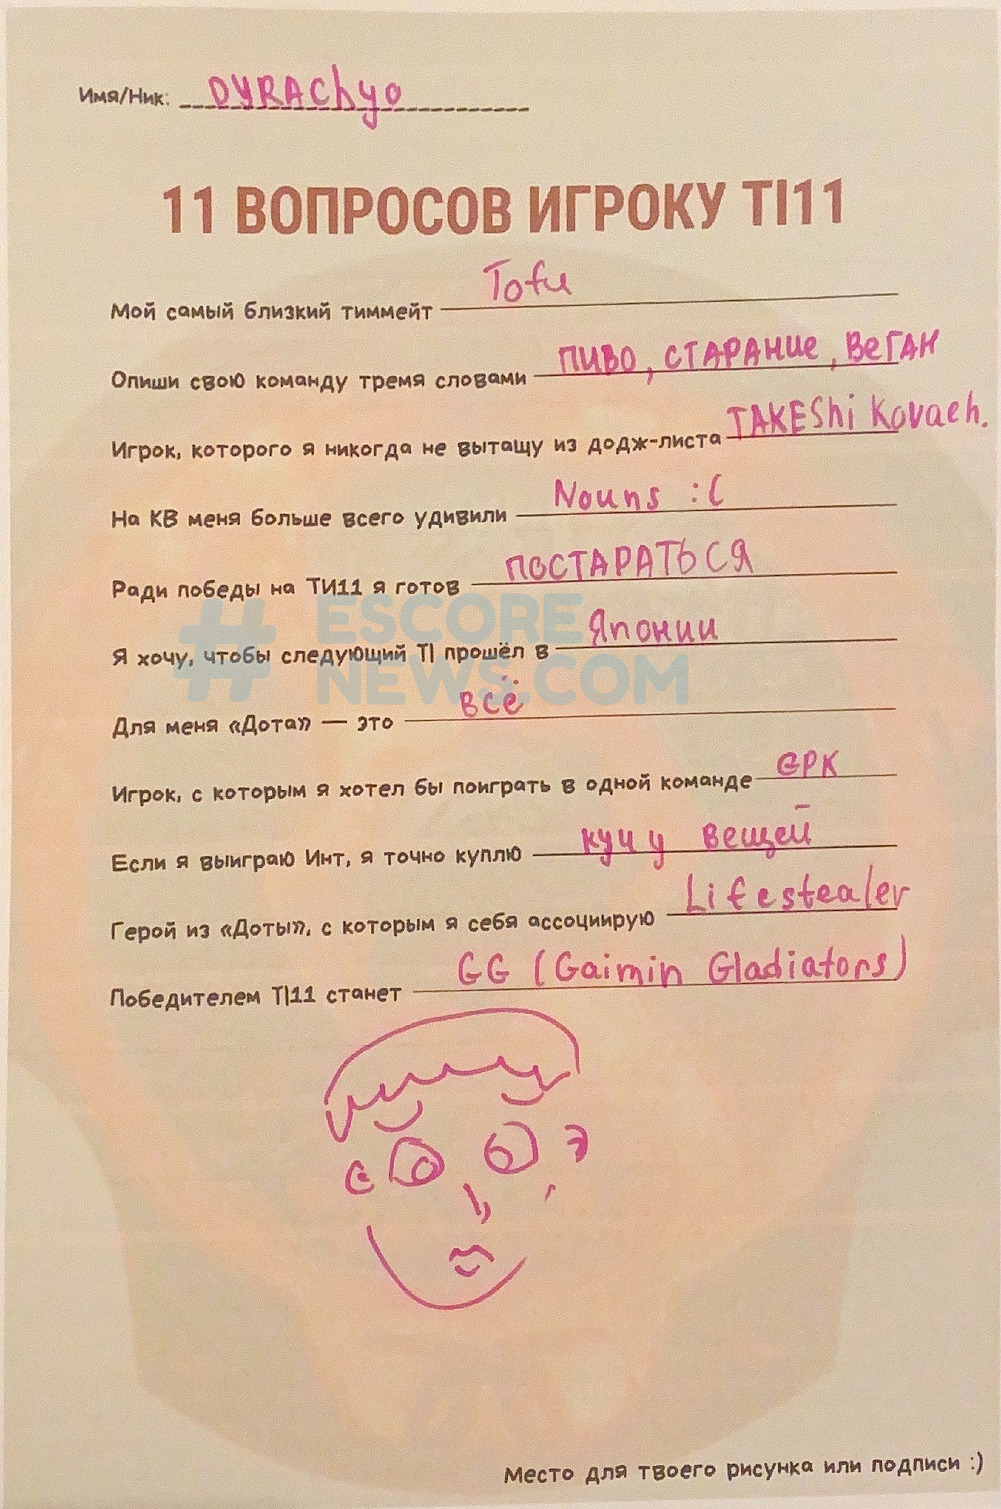 Имя/Ник: DYRAChyo
11 ВОПРОСОВ ИГРОКУ TI11
Мой самый близкий тиммейт Tofu
Опиши свою команду тремя словами ПИВО, СТАРАНИЕ, ВЕГАН
Игрок, которого я никогда не вытащу из додж-листа TAKEShi Kovach.
На КВ меня больше всего удивили Nouns :(
Ради победы на ТИ11 я готов ПОСТАРАТЬСЯ
Я хочу, чтобы следующий TI прошёл в Японии
Для меня «Дота» — это всё
Игрок, с которым я хотел бы поиграть в одной команде
Если я выиграю Инт, я точно куплю кучу вещей
Герой из «Доты», с которым я себя ассоциирую Lifestealer
Победителем TI11 станет GG (Gaimin Gladiators)
# ESCORE
NEWS.COM
Место для твоего рисунка или подписи :)